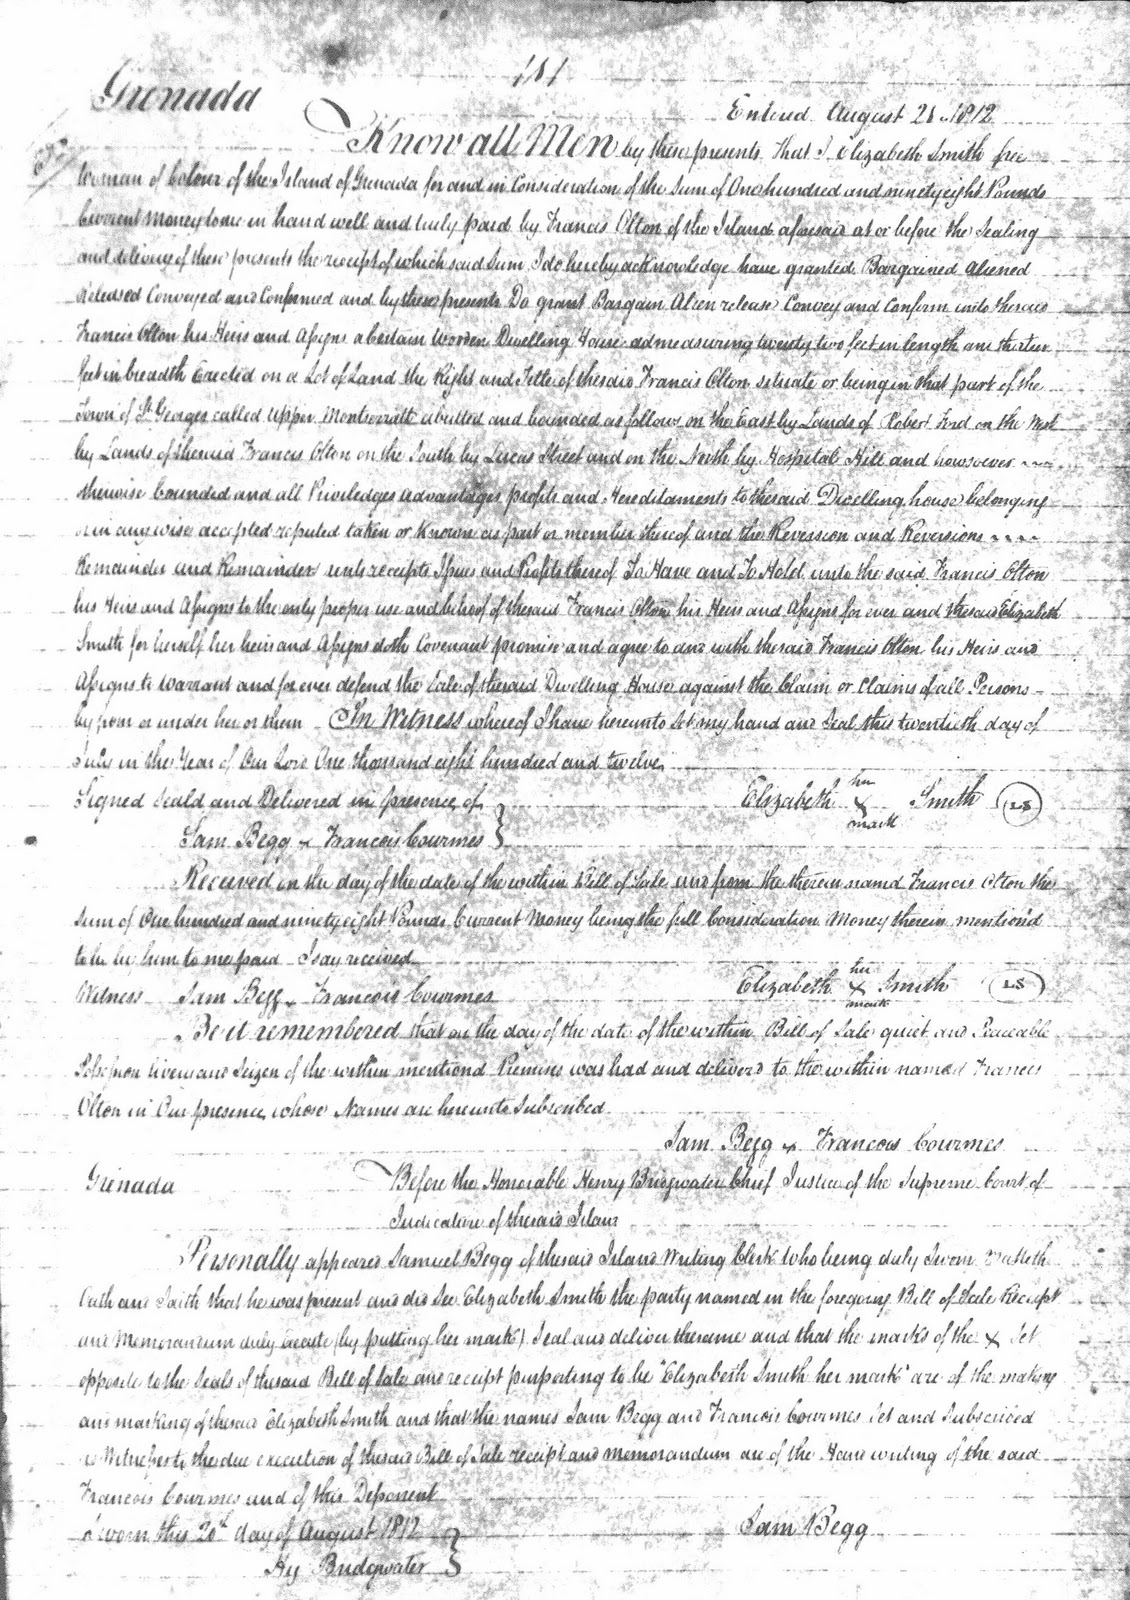 Grenada
Entered August 21 1812
Know all Men by these presents That I Elizabeth Smith free
Woman of Colour of the Island of Grenada for and in Consideration of the Sum of One hundred and ninety eight Pounds
Current Money to me in hand well and truly paid by Francis Olton of the Island aforesaid at or before the Sealing
and delivery of these presents the receipt of which said Sum I do hereby acknowledge have granted Bargained Aliened
Released Conveyed and Confirmed and by these presents Do grant Bargain Alien release Convey and Confirm unto the said
Francis Olton his Heirs and Assigns a Certain Wooden Dwelling House admeasuring twenty two feet in length and thirteen
feet in breadth Erected on a Lot of Land the Right and Title of the said Francis Olton situate or being in that part of the
Town of St Georges called upper Montserratt abutted and bounded as follows on the East by Lands of Robert Ford on the West
by Lands of the said Francis Olton on the South by Lucas Street and on the North by Hospital Hill and howsoever
otherwise bounded and all Priviledges advantages profits and Hereditaments to the said Dwelling house belonging
or in any wise accepted reputed taken or known as part or member thereof and the Reversion and Reversions
Remainder and Remainders rents receipts Issues and Profits thereof To Have and To Hold unto the said Francis Olton
his Heirs and Assigns to the only proper use and behoof of the said Francis Olton his Heirs and Assigns for ever and the said Elizabeth
Smith for herself her heirs and Assigns doth Covenant promise and agree to and with the said Francis Olton his Heirs and
Assigns to Warrant and for ever defend the Sale of the said Dwelling House against the Claim or Claims of all Persons
by from or under her or them In Witness whereof I have hereunto Set my hand and Seal this twentieth day of
July in the Year of Our Lord One thousand eight hundred and twelve
Signed Seald and Delivered in presence of
Elizabeth her x mark Smith LS
Sam Begg x Francois Courmes
Received on the day of the date of the within Bill of Sale and from the therein named Francis Olton the
Sum of One hundred and ninety eight Pounds Current Money being the full Consideration Money therein mention'd
to be by him to me paid I say received
Witness Sam Begg x Francois Courmes
Elizabeth her x mark Smith LS
Be it remembered that on the day of the date of the within Bill of Sale quiet and Peaceable
Possession livery and Seizen of the within mentiond Premises was had and deliverd to the within named Francis
Olton in Our presence whose Names are hereunto Subscribed
Sam Begg x Francois Courmes
Grenada
Before the Honorable Henry Bridgwater Chief Justice of the Supreme Court of
Judicature of the said Island
Personally appeared Samuel Begg of the said Island Writing Clerk who being duly Sworn Maketh
Oath and Saith that he was present and did See Elizabeth Smith the party named in the foregoing Bill of Sale Receipt
and Memorandum duly execute (by putting her mark) Seal and deliver the same and that the marks of the x Set
opposite to the Seals of the said Bill of Sale and receipt purporting to be "Elizabeth Smith her mark" are of the making
and marking of the said Elizabeth Smith and that the names Sam Begg and Francois Courmes Set and Subscribed
as Witnesses to the due execution of the said Bill of Sale receipt and memorandum are of the Hand writing of the said
Francois Courmes and of this Deponent
Sworn this 20th day of August 1812
Sam Begg
Hy Bridgwater